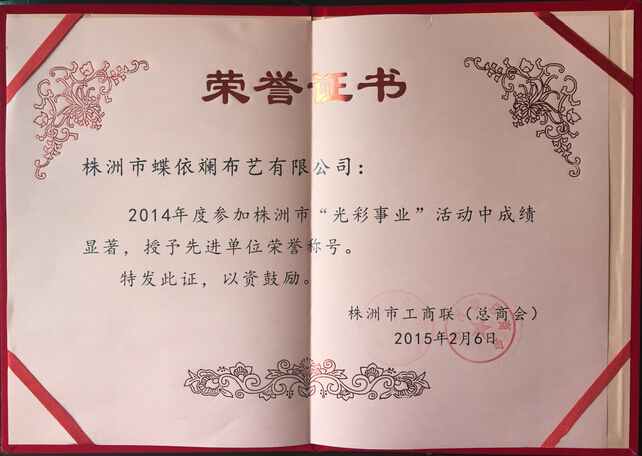 荣誉证书
株洲市蝶依斓布艺有限公司：
2014年度参加株洲市“光彩事业”活动中成绩
显著，授予先进单位荣誉称号。
特发此证，以资鼓励。
株洲市工商联（总商会）
2015年2月6日